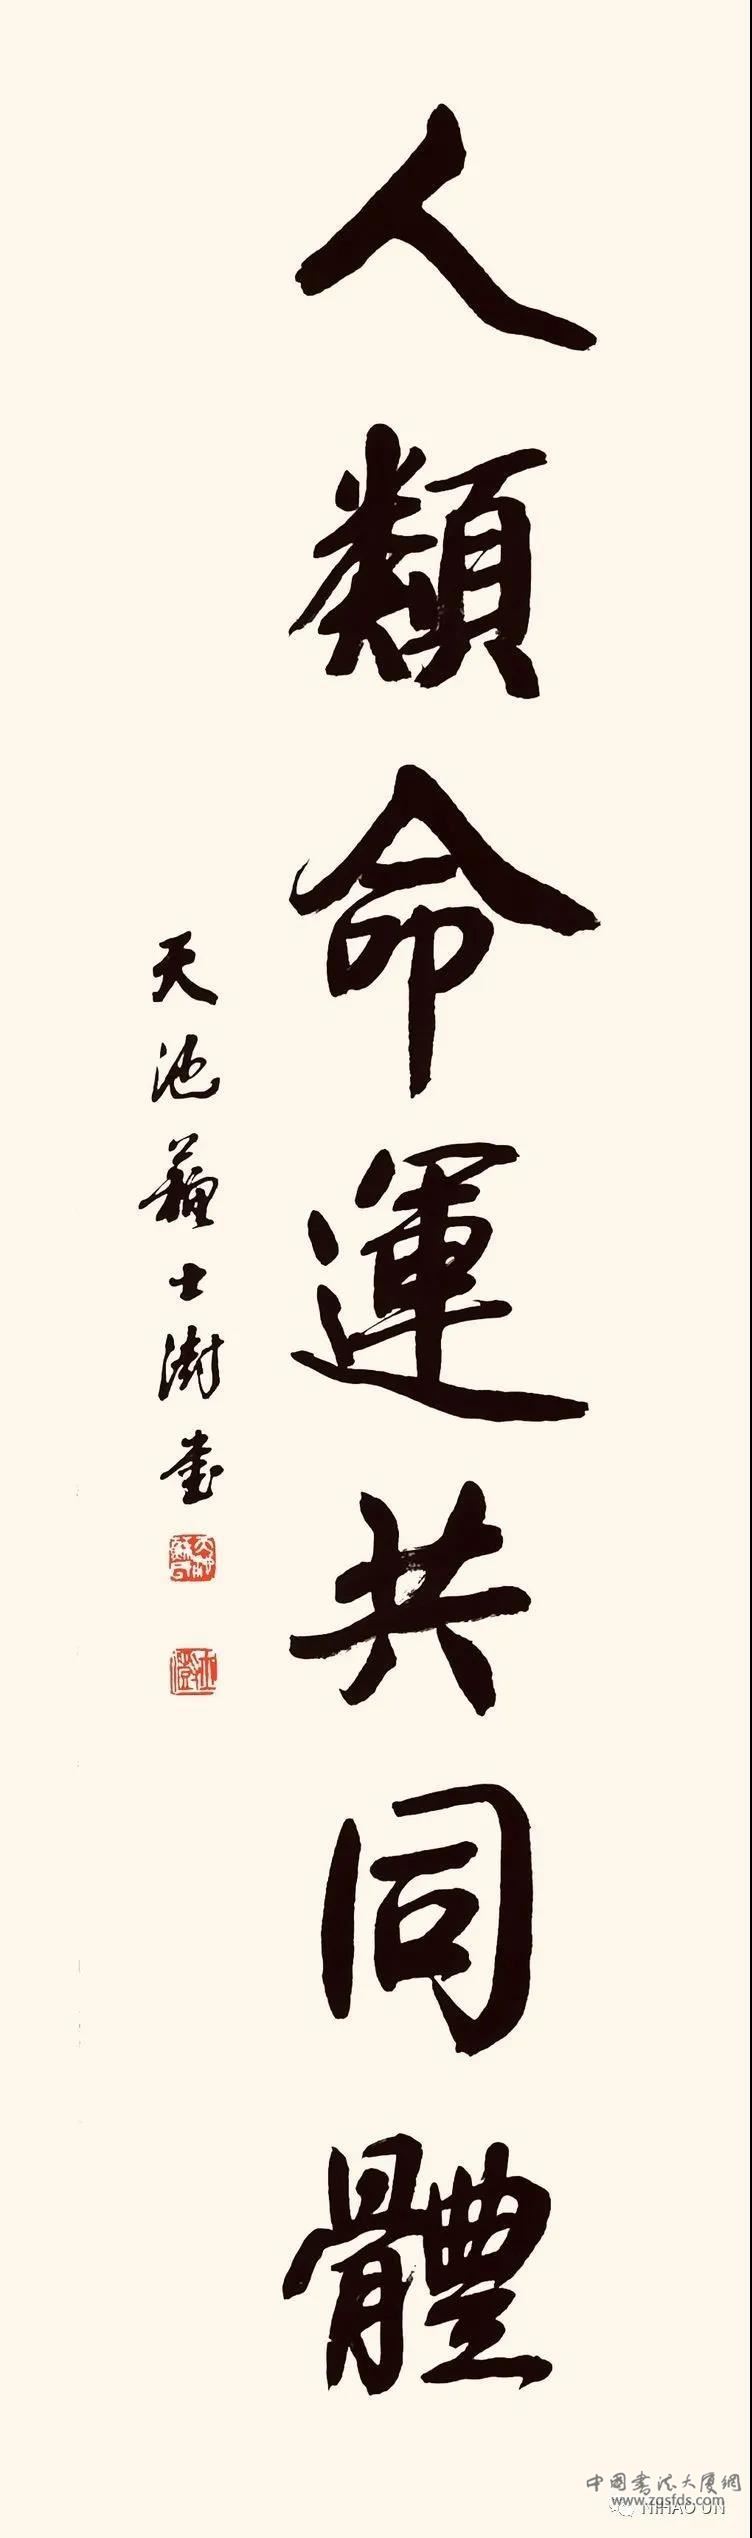 人類命運共同體
天池蘇士澍書
中国书法大厦网
www.zgsfds.com
NIHAO UN